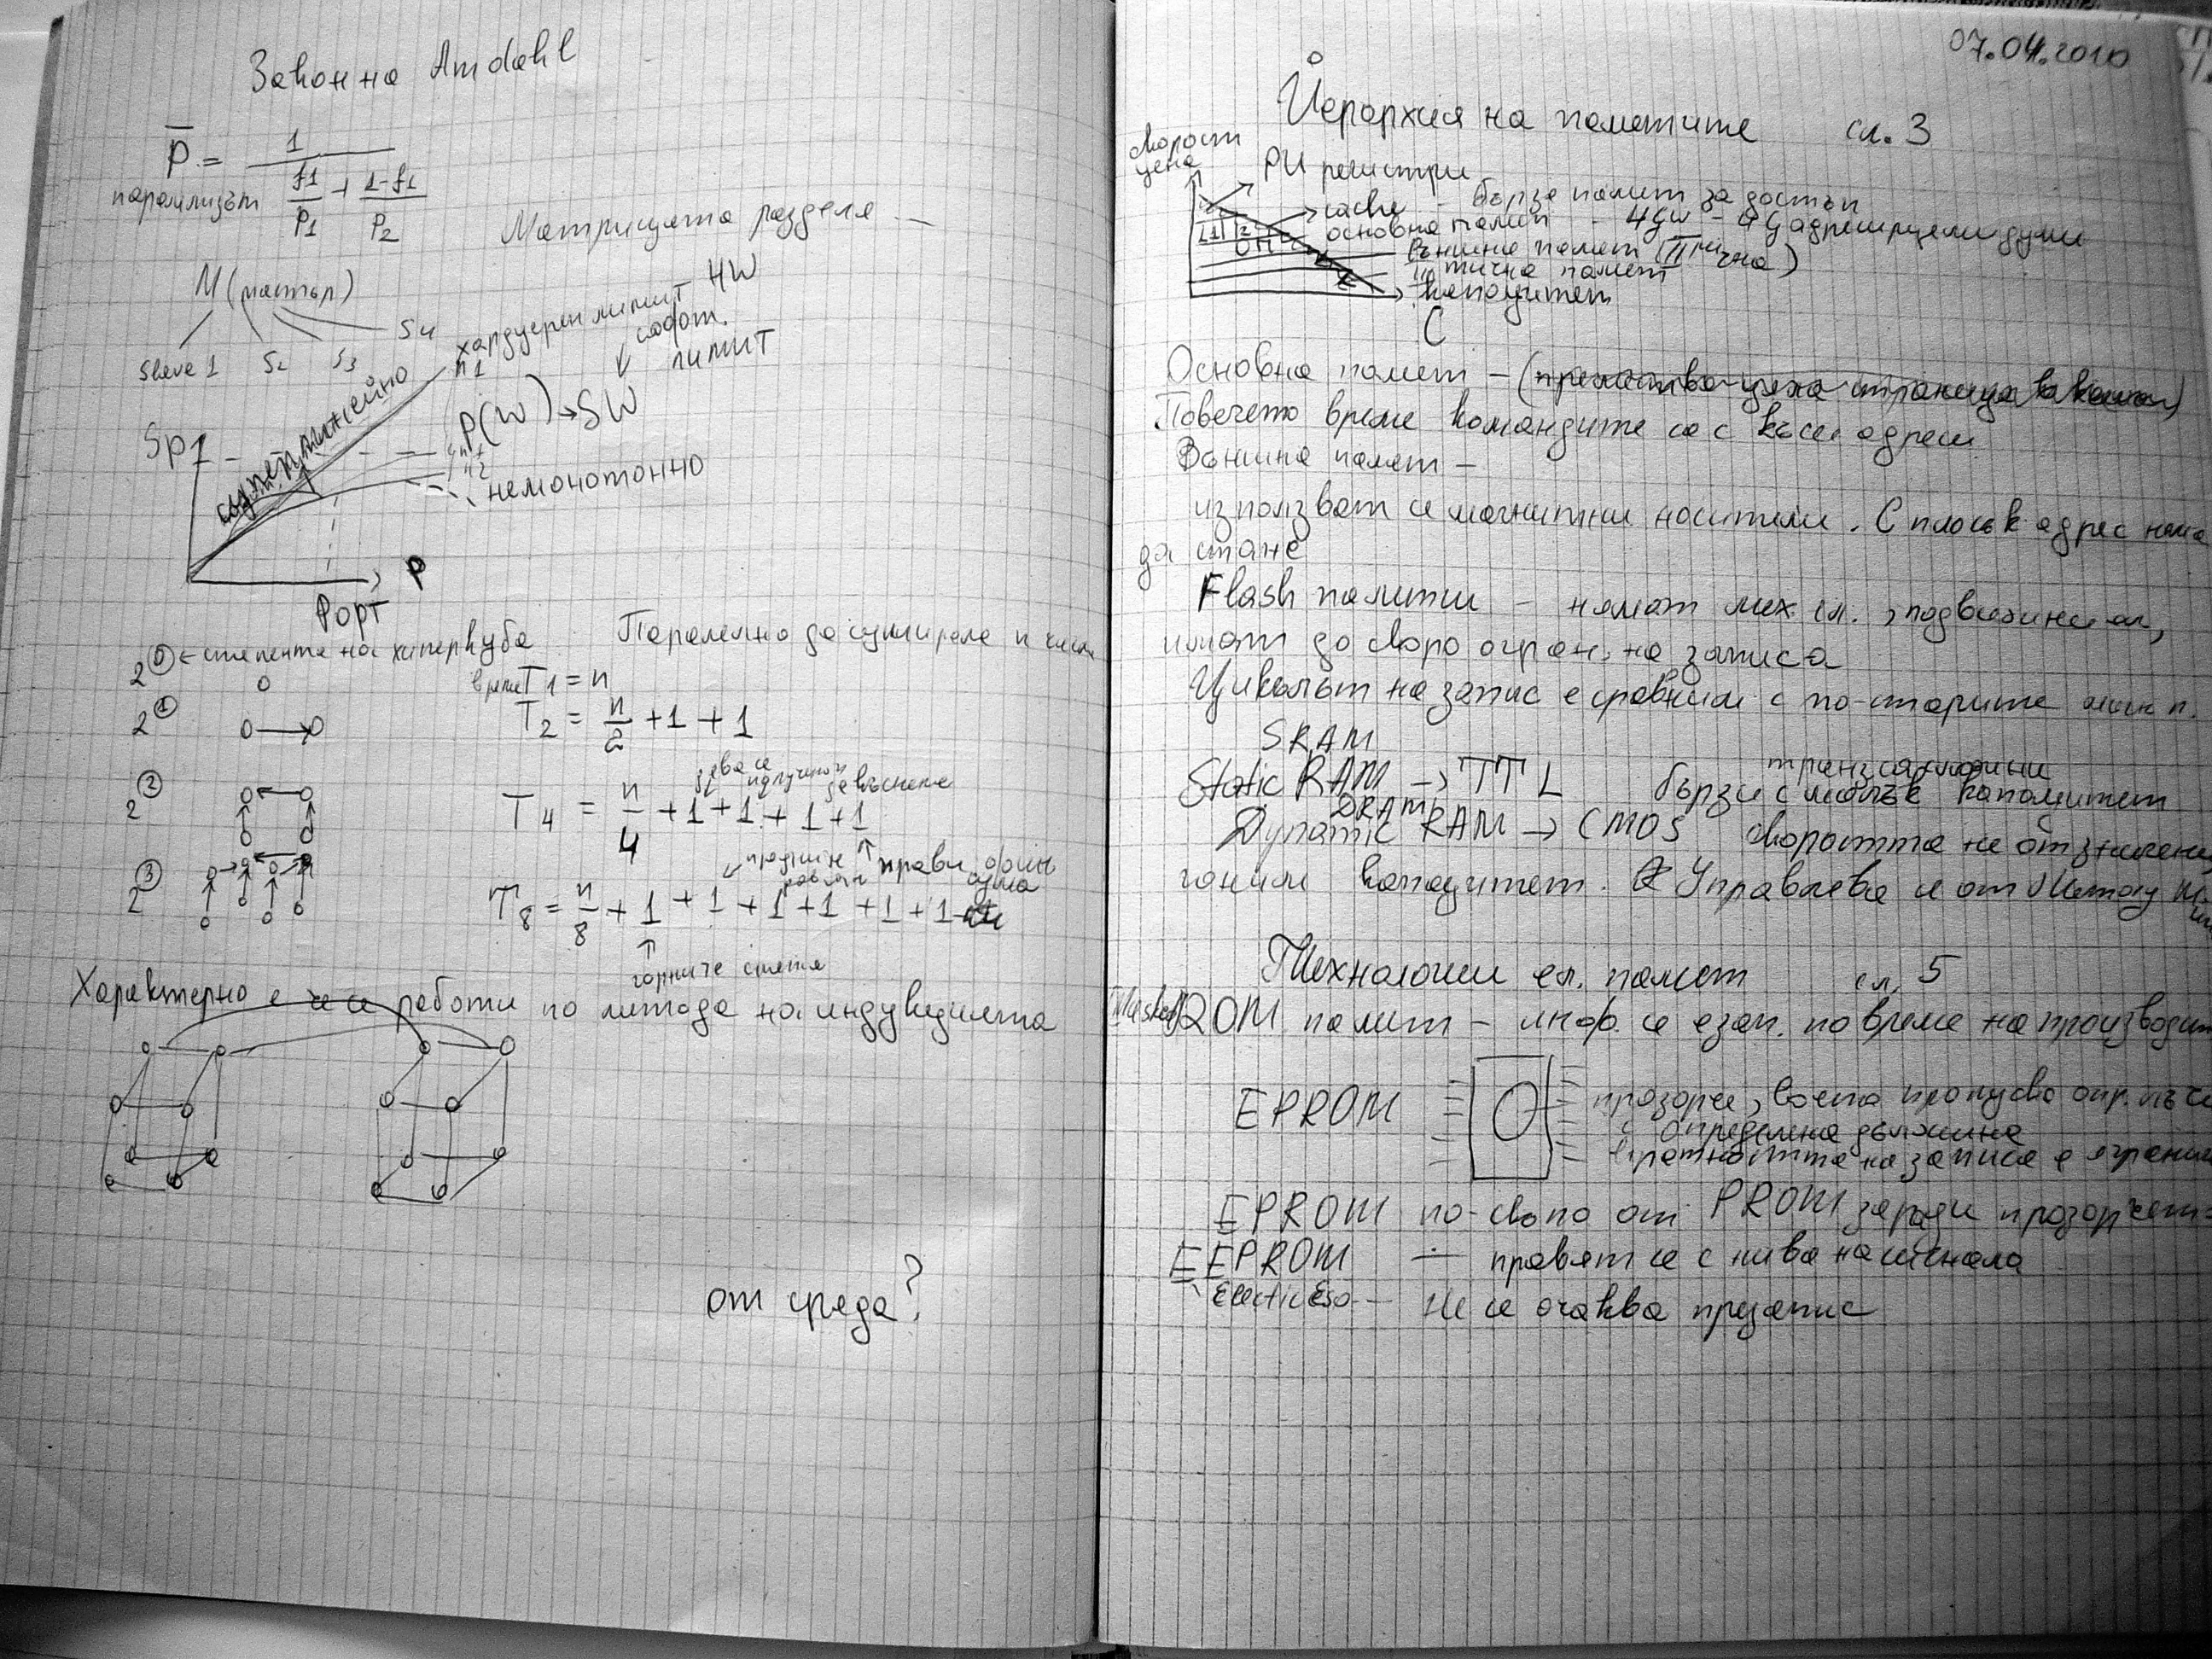 Закон на Amdahl
P = 1 / (f1/P1 + (1-f1)/P2)
паралелизът
Матрицата разделя
M (мастър)
Slave 1 S2 S3 S4
хардуерен лимит HW
n1
софт.
лимит
P(W) → SW
Sp
суперлинейно
n2
немонотонно
P
Popт
2⁰ ← степента на хиперкуба
Паралелно да сумираме n числа
2¹
време T1 = n
T2 = n/2 + 1 + 1
2²
два се получават
T4 = n/4 + 1 + 1 + 1 + 1
2³
прави финн
сума
T8 = n/8 + 1 + 1 + 1 + 1 + 1 + 1
горните смятат
Характерно е че се работи по метода на индукцията
от сряда?
07.04.2010
Йерархия на паметите сл. 3
скорост
цена
PU регистри
cache - бърза памет за достъп
основна памет - 4GW - 4G адресируеми думи
външна памет (IIична)
IIIтична памет
капацитет
L1 L2
ОП
C
Основна памет - (премества цяла страница в)
Повечето време командите са с къси адреси
Външна памет -
използват се магнитни носители. С плосък адрес няма
да стане
Flash памети - нямат мех. ел., подвижни ел,
имат до скоро огран. на записа
Цикълът на запис е сравним с по-старите
SRAM
Static RAM → TTL бързи с малък капацитет
DRAM
Dynamic RAM → CMOS скоростта не от значение,
гоним капацитет. Управлява се от
Технологии ел. памет сл. 5
(Masked) ROM памет - инф. се зап. по време на производ
EPROM прозорче, което пропуска опр. лъчи
с определена дължина
кратността на записа е огранич
EPROM по-скъпо от PROM заради прозорчет
EEPROM — правят се с нива на сигнала
не се очаква презапис